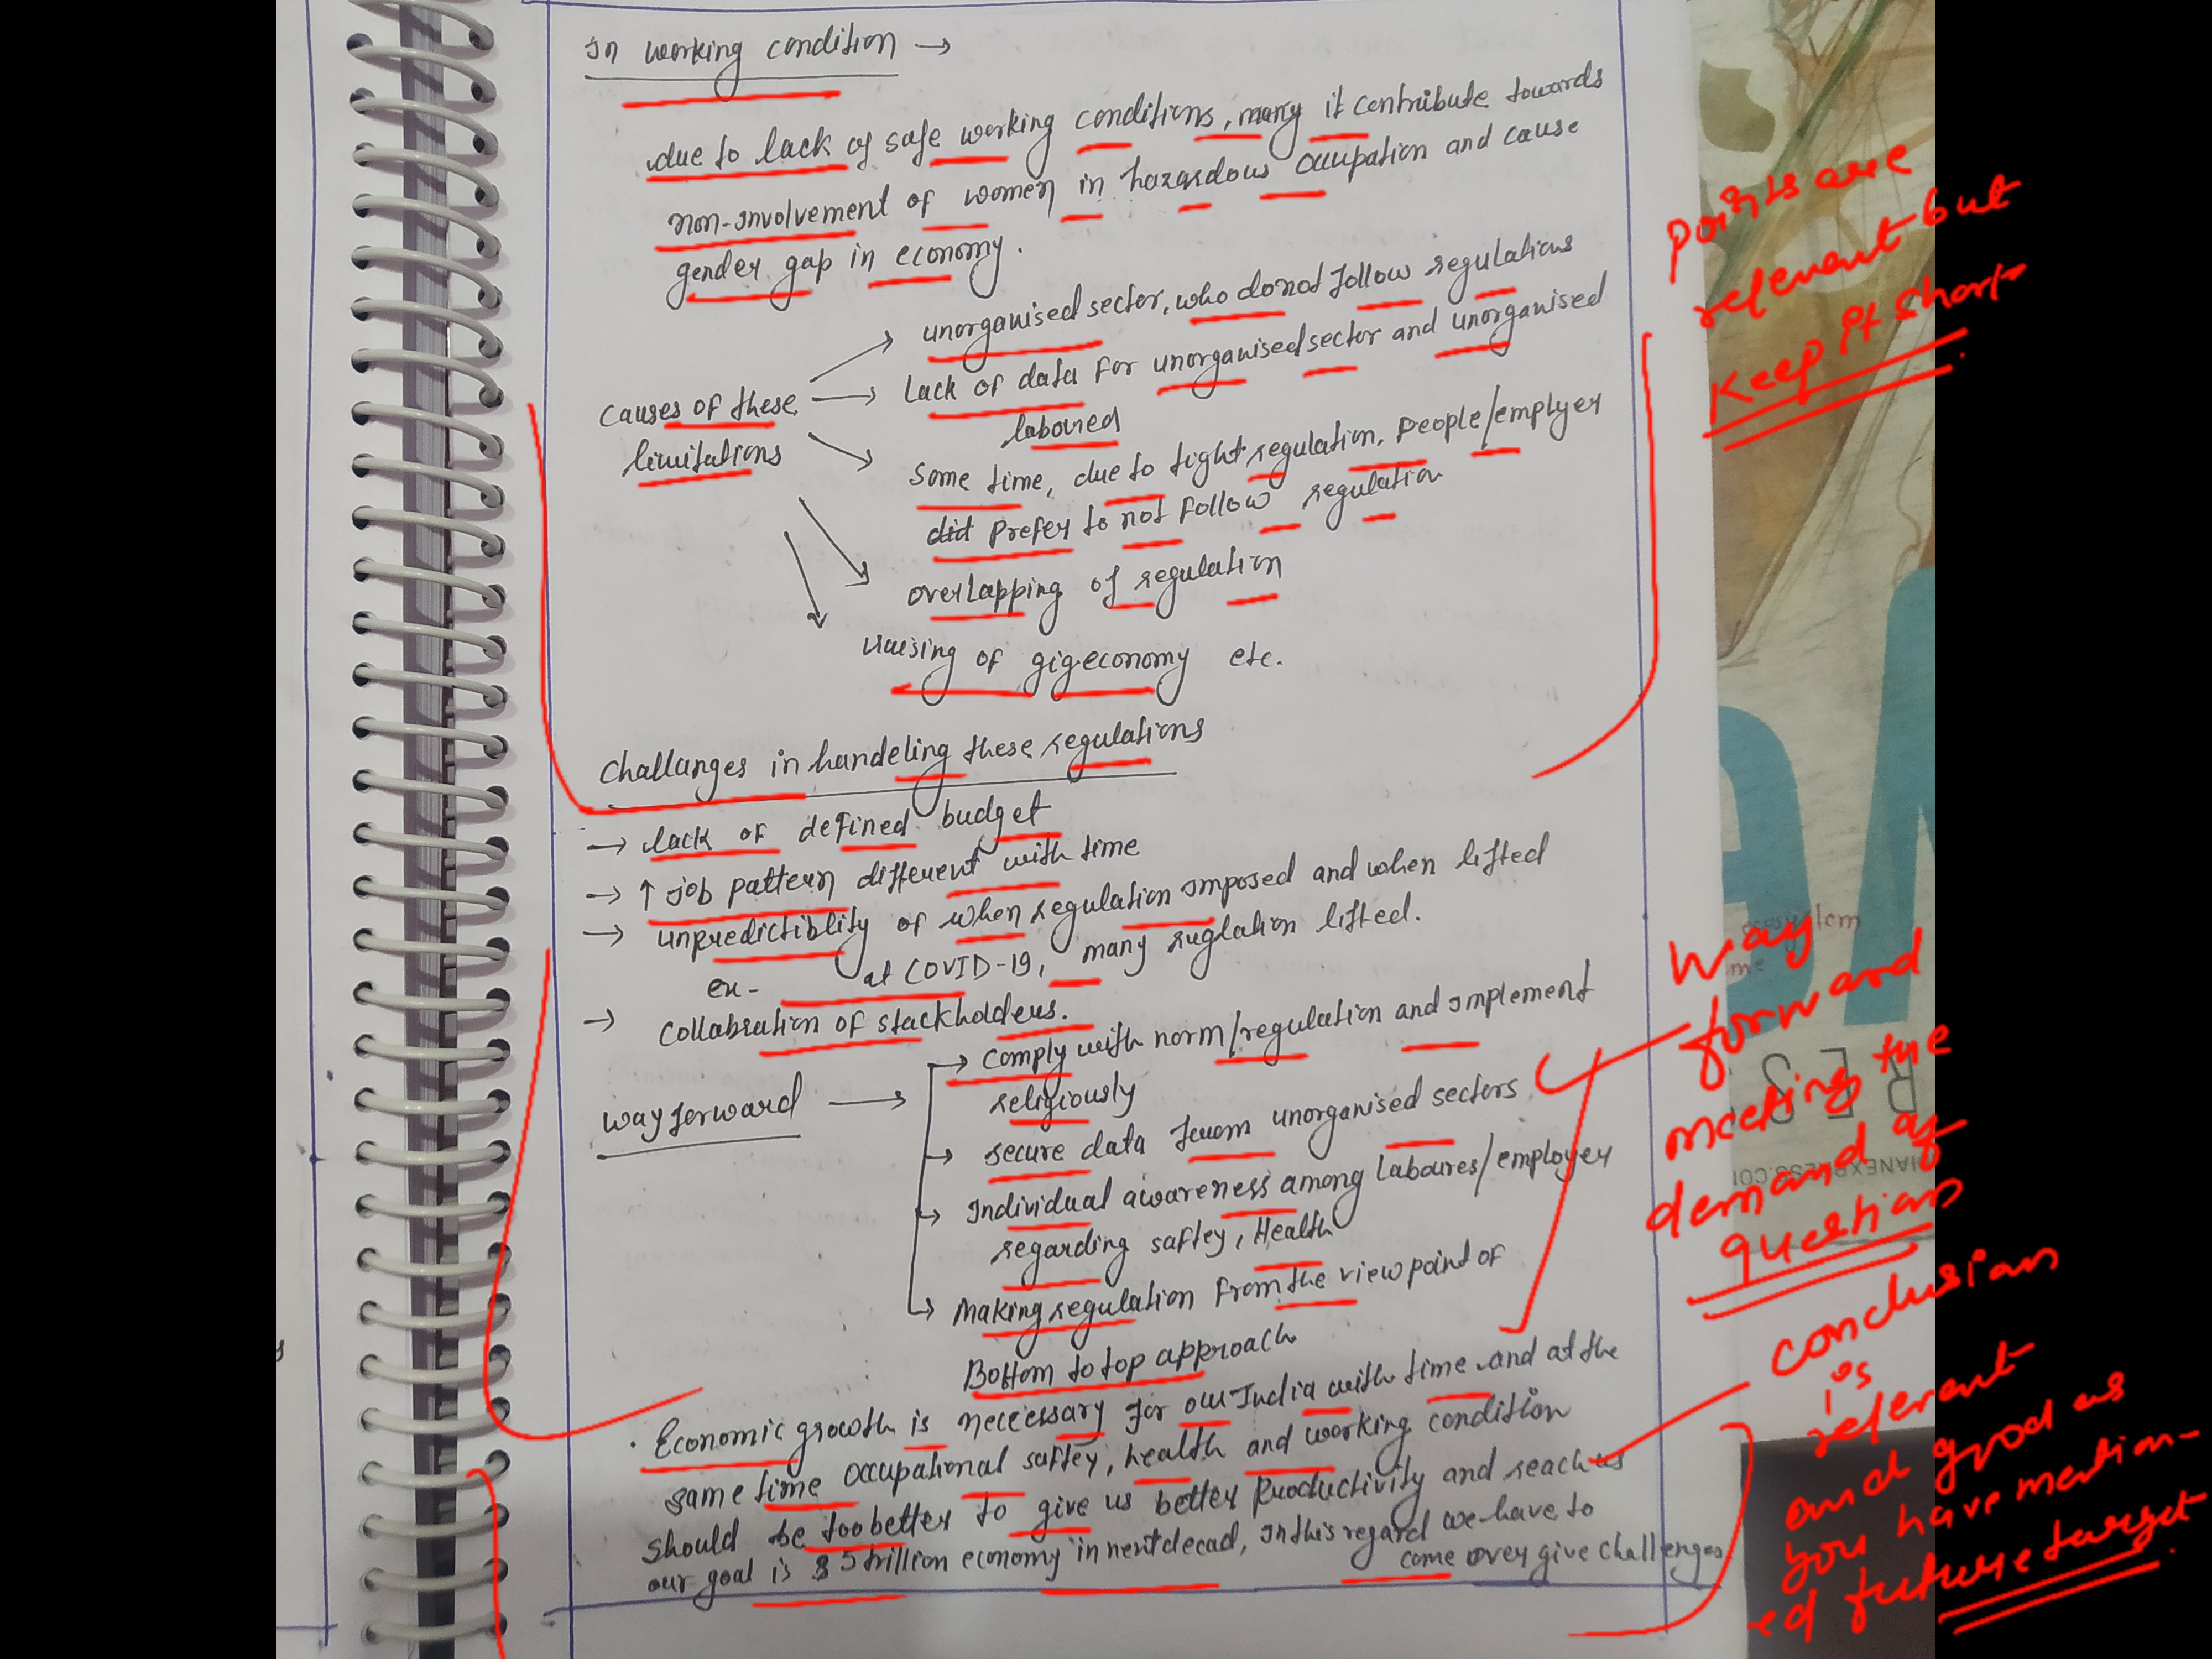 In working condition →
due to lack of safe working conditions, many it contribute towards
non-involvement of women in hazardous occupation and cause
gender gap in economy.
unorganised sector, who donot follow regulations
causes of these limitations
Lack of data for unorganised sector and unorganised
laboured
some time, due to tight regulation, people/employer
did prefer to not follow regulation
overlapping of regulation
raising of gigeconomy etc.
Points are
relevant but
Keep it short
Challanges in handeling these regulations
→ lack of defined budget
→ ↑ job pattern different with time
→ unpredictiblity of when regulation imposed and when lifted
ex- at COVID-19, many ruglation lifted.
→ Collabration of stackholders.
way forward →
→ comply with norm/regulation and implement
religiously
→ secure data from unorganised sectors
→ Individual awareness among Laboures/employer
regarding saftey, Health
→ Making regulation from the view point of
Bottom to top approach
way
forward
meeting the
demand of
question
. Economic growth is neccessary for our India with time and at the
same time occupational saftey, health and working condition
should be too better to give us better productivity and reach us
our goal is $5 trillion economy in next decad, In this regard we have to
come over give challenges
conclusion
is
relevant
and good as
you have mention-
ed future target